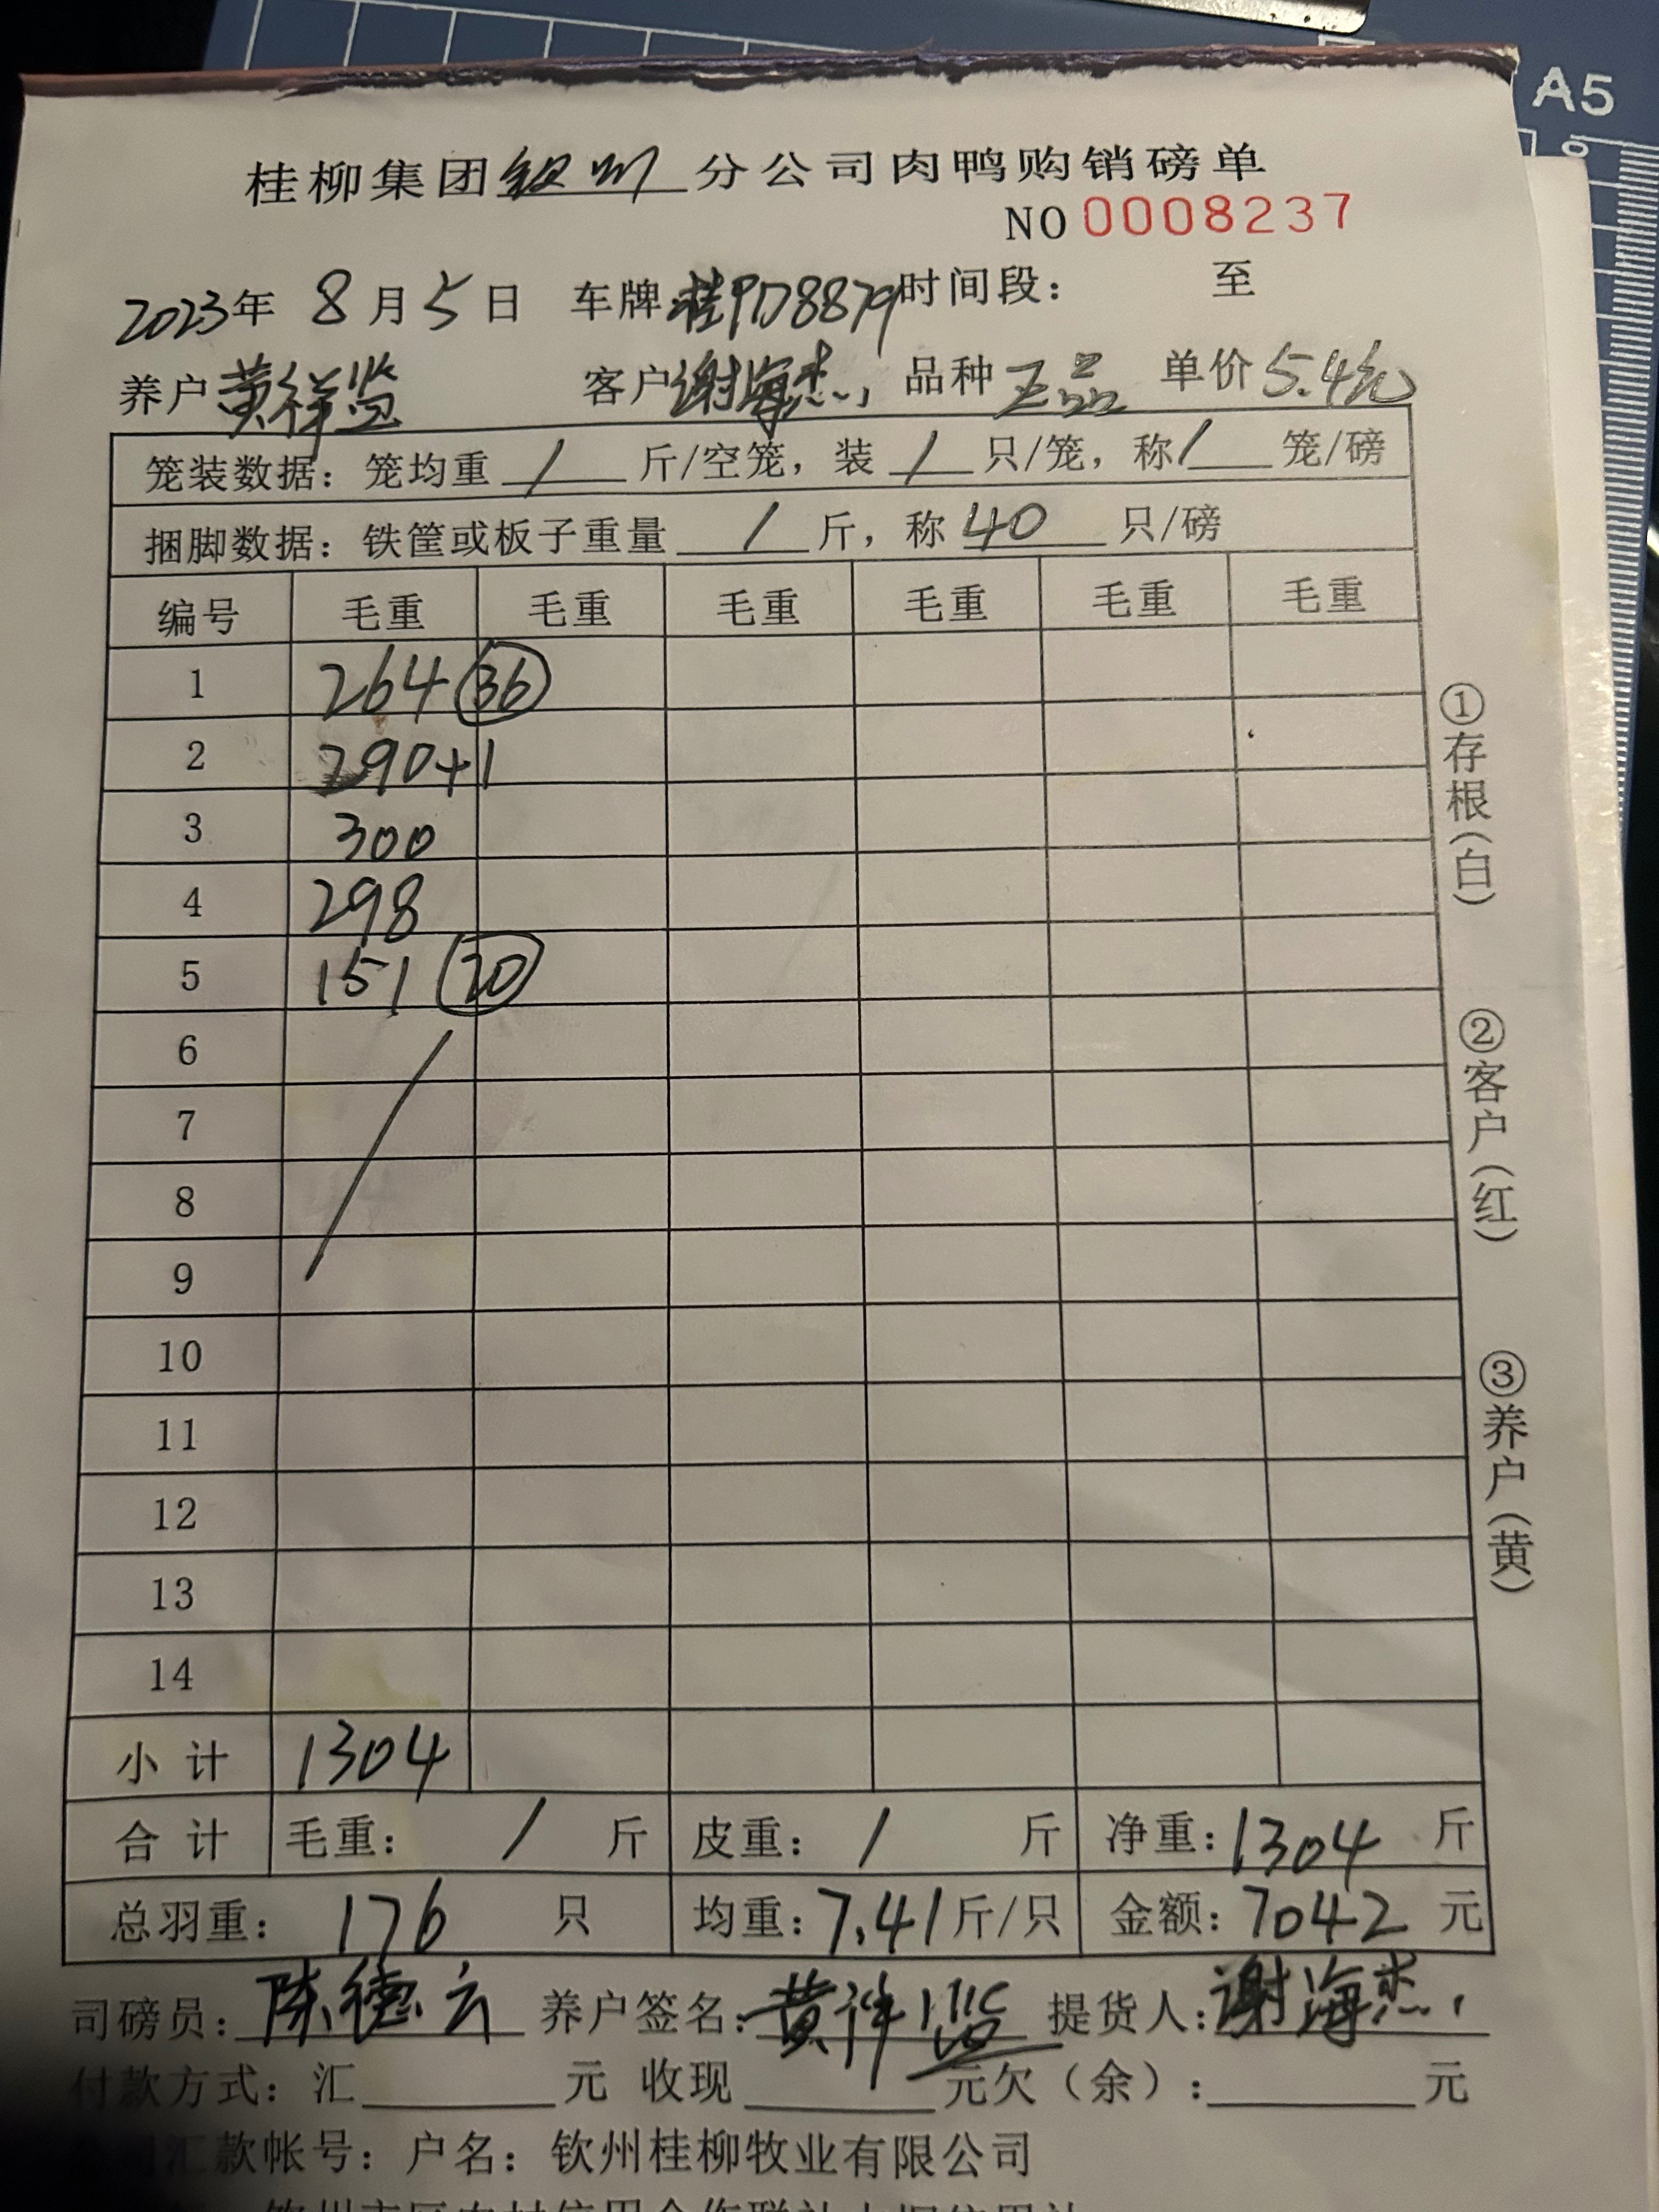 A5
桂柳集团钦州分公司肉鸭购销磅单
NO 0008237
2023年 8月5日 车牌:桂PD8879 时间段: 至
养户 黄祥 客户 谢海杰 品种 正品 单价 5.4元
笼装数据: 笼均重 / 斤/空笼, 装 / 只/笼, 称 / 笼/磅
捆脚数据: 铁筐或板子重量 / 斤, 称 40 只/磅
编号 毛重 毛重 毛重 毛重 毛重 毛重
1 264 (36)
2 290+1
3 300
4 298
5 151 (20)
6
7
8
9
10
11
12
13
14
小计 1304
合计 毛重: / 斤 皮重: / 斤 净重: 1304 斤
总羽重: 176 只 均重: 7.41 斤/只 金额: 7042 元
司磅员: 陈德云 养户签名: 黄祥 提货人: 谢海杰
付款方式: 汇 元 收现 元欠(余): 元
汇款帐号: 户名: 钦州桂柳牧业有限公司
①存根(白)
②客户(红)
③养户(黄)